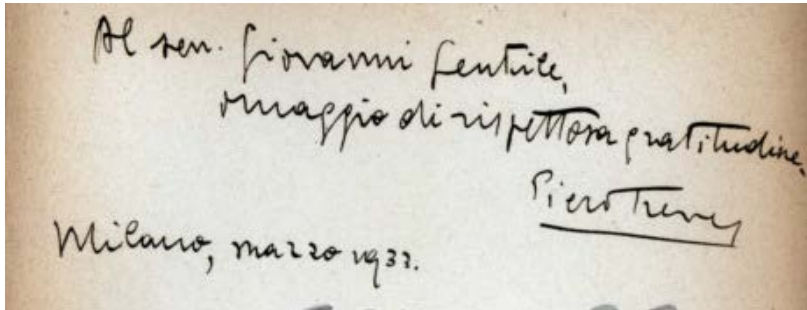 Al sen. Giovanni Gentile,
omaggio di rispettosa gratitudine.
Piero Treves
Milano, marzo 1933.